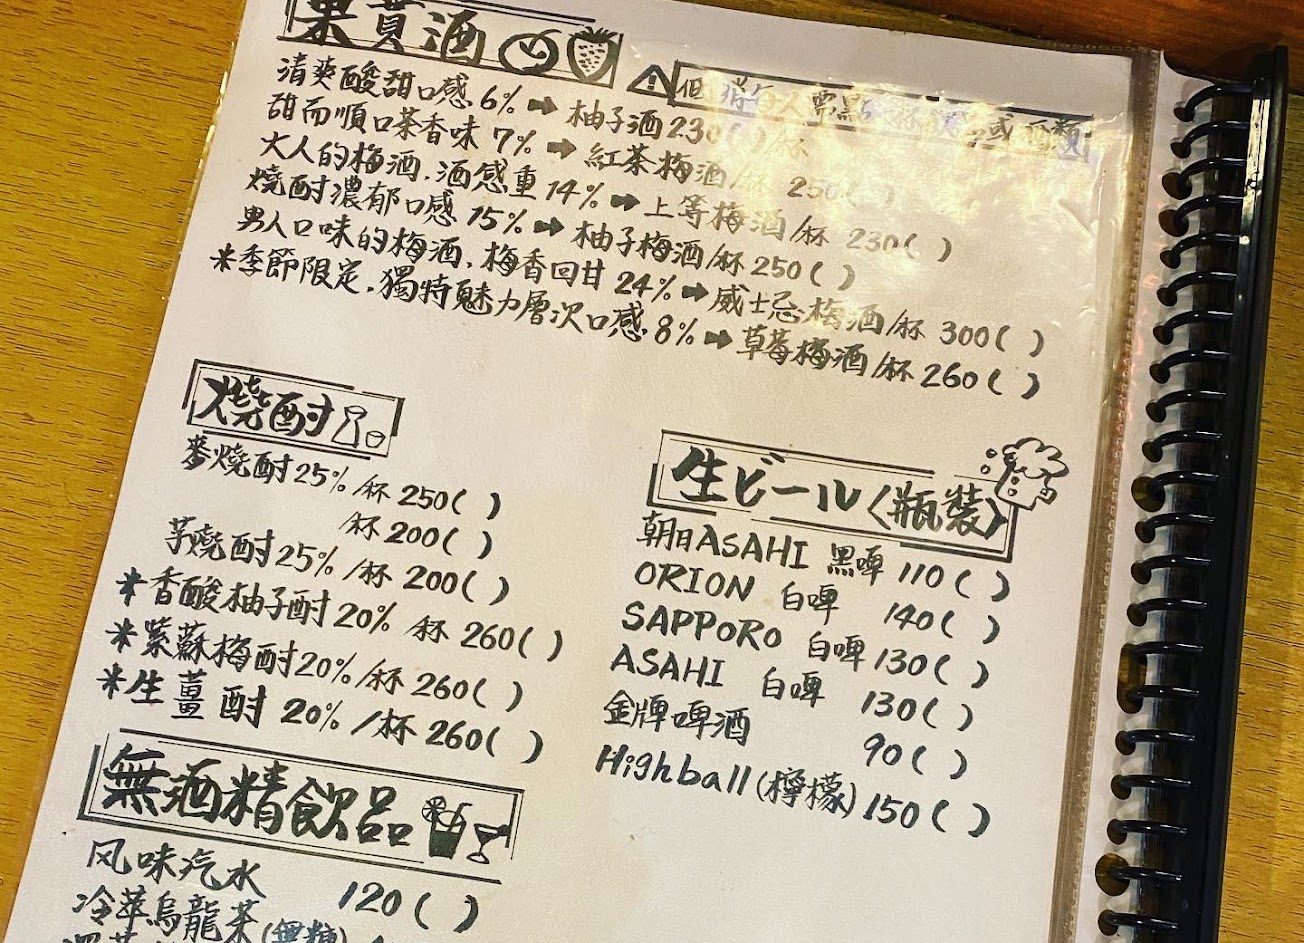 果實酒
清爽酸甜口感 6% ➡ 柚子酒 230( )/杯
甜而順口茶香味 7% ➡ 紅茶梅酒/杯 250( )
大人的梅酒.酒感重 14% ➡ 上等梅酒/杯 230( )
燒酎濃郁口感 15% ➡ 柚子梅酒/杯 250( )
男人口味的梅酒.梅香回甘 24% ➡ 威士忌梅酒/杯 300( )
*季節限定.獨特魅力層次口感 8% ➡ 草莓梅酒/杯 260( )
低消每人需點一杯飲品或酒類
燒酎
麥燒酎 25%/杯 250( )
/杯 200( )
芋燒酎 25%/杯 200( )
*香酸柚子酎 20% /杯 260( )
*紫蘇梅酎 20%/杯 260( )
*生薑酎 20%/杯 260( )
生ビール〈瓶裝〉
朝日ASAHI 黑啤 110( )
ORION 白啤 140( )
SAPPORO 白啤 130( )
ASAHI 白啤 130( )
金牌啤酒 90( )
Highball(檸檬) 150( )
無酒精飲品
风味汽水 120( )
冷萃烏龍茶(無糖)